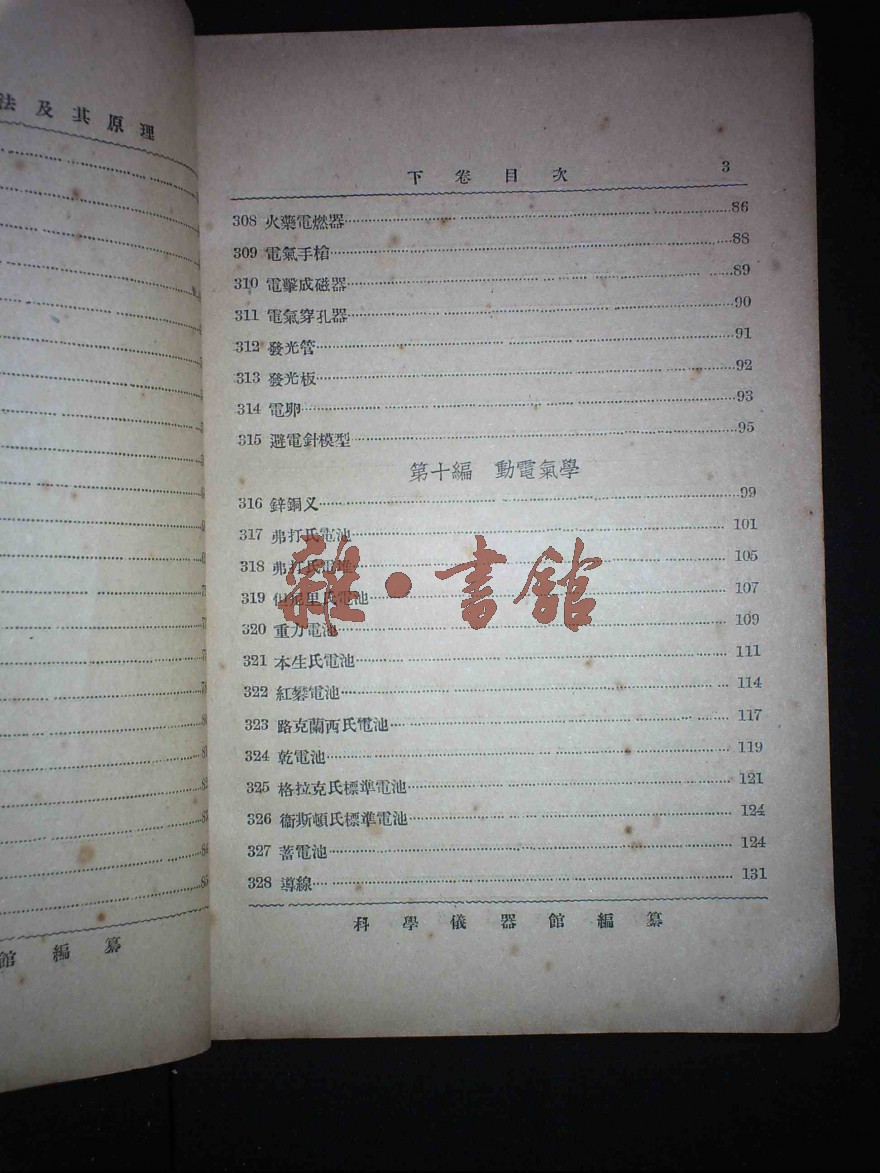 法及其原理
館編纂
下卷目次 3
308 火藥電燃器 86
309 電氣手槍 88
310 電擊成磁器 89
311 電氣穿孔器 90
312 發光管 91
313 發光板 92
314 電卵 93
315 避電針模型 95
第十編 動電氣學
316 鋅銅叉 99
317 弗打氏電池 101
318 弗打氏電堆 105
319 但尼里氏電池 107
320 重力電池 109
321 本生氏電池 111
322 紅礬電池 114
323 路克蘭西氏電池 117
324 乾電池 119
325 格拉克氏標準電池 121
326 衞斯頓氏標準電池 124
327 蓄電池 124
328 導線 131
科學儀器館編纂
雜·書館